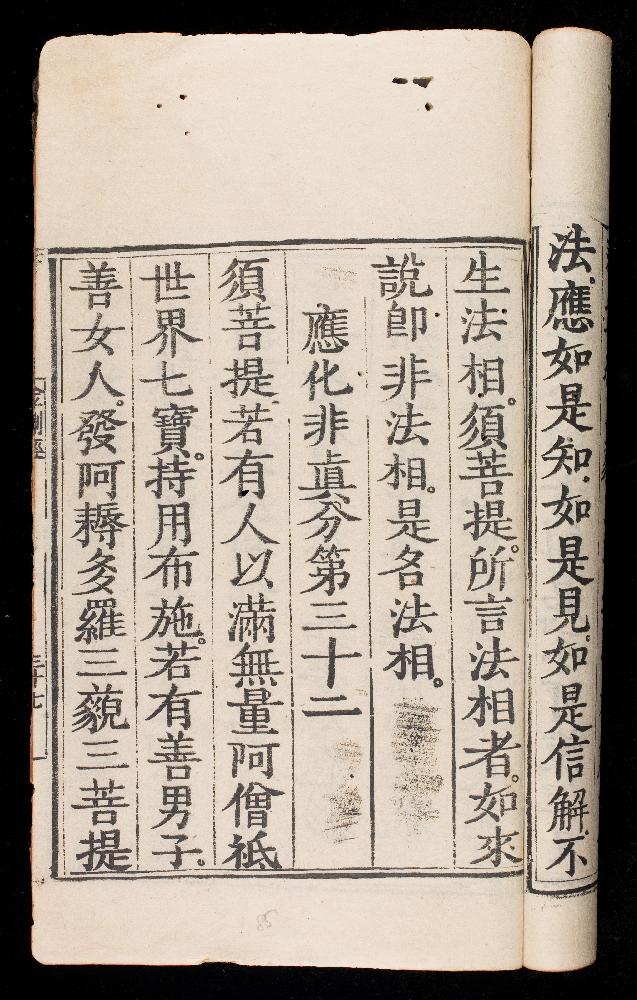 法應如是知如是見如是信解不
生法相。須菩提。所言法相者。如來
說即非法相。是名法相。
應化非眞分第三十二
須菩提若有人以滿無量阿僧祇
世界七寶。持用布施。若有善男子。
善女人。發阿耨多羅三藐三菩提
85